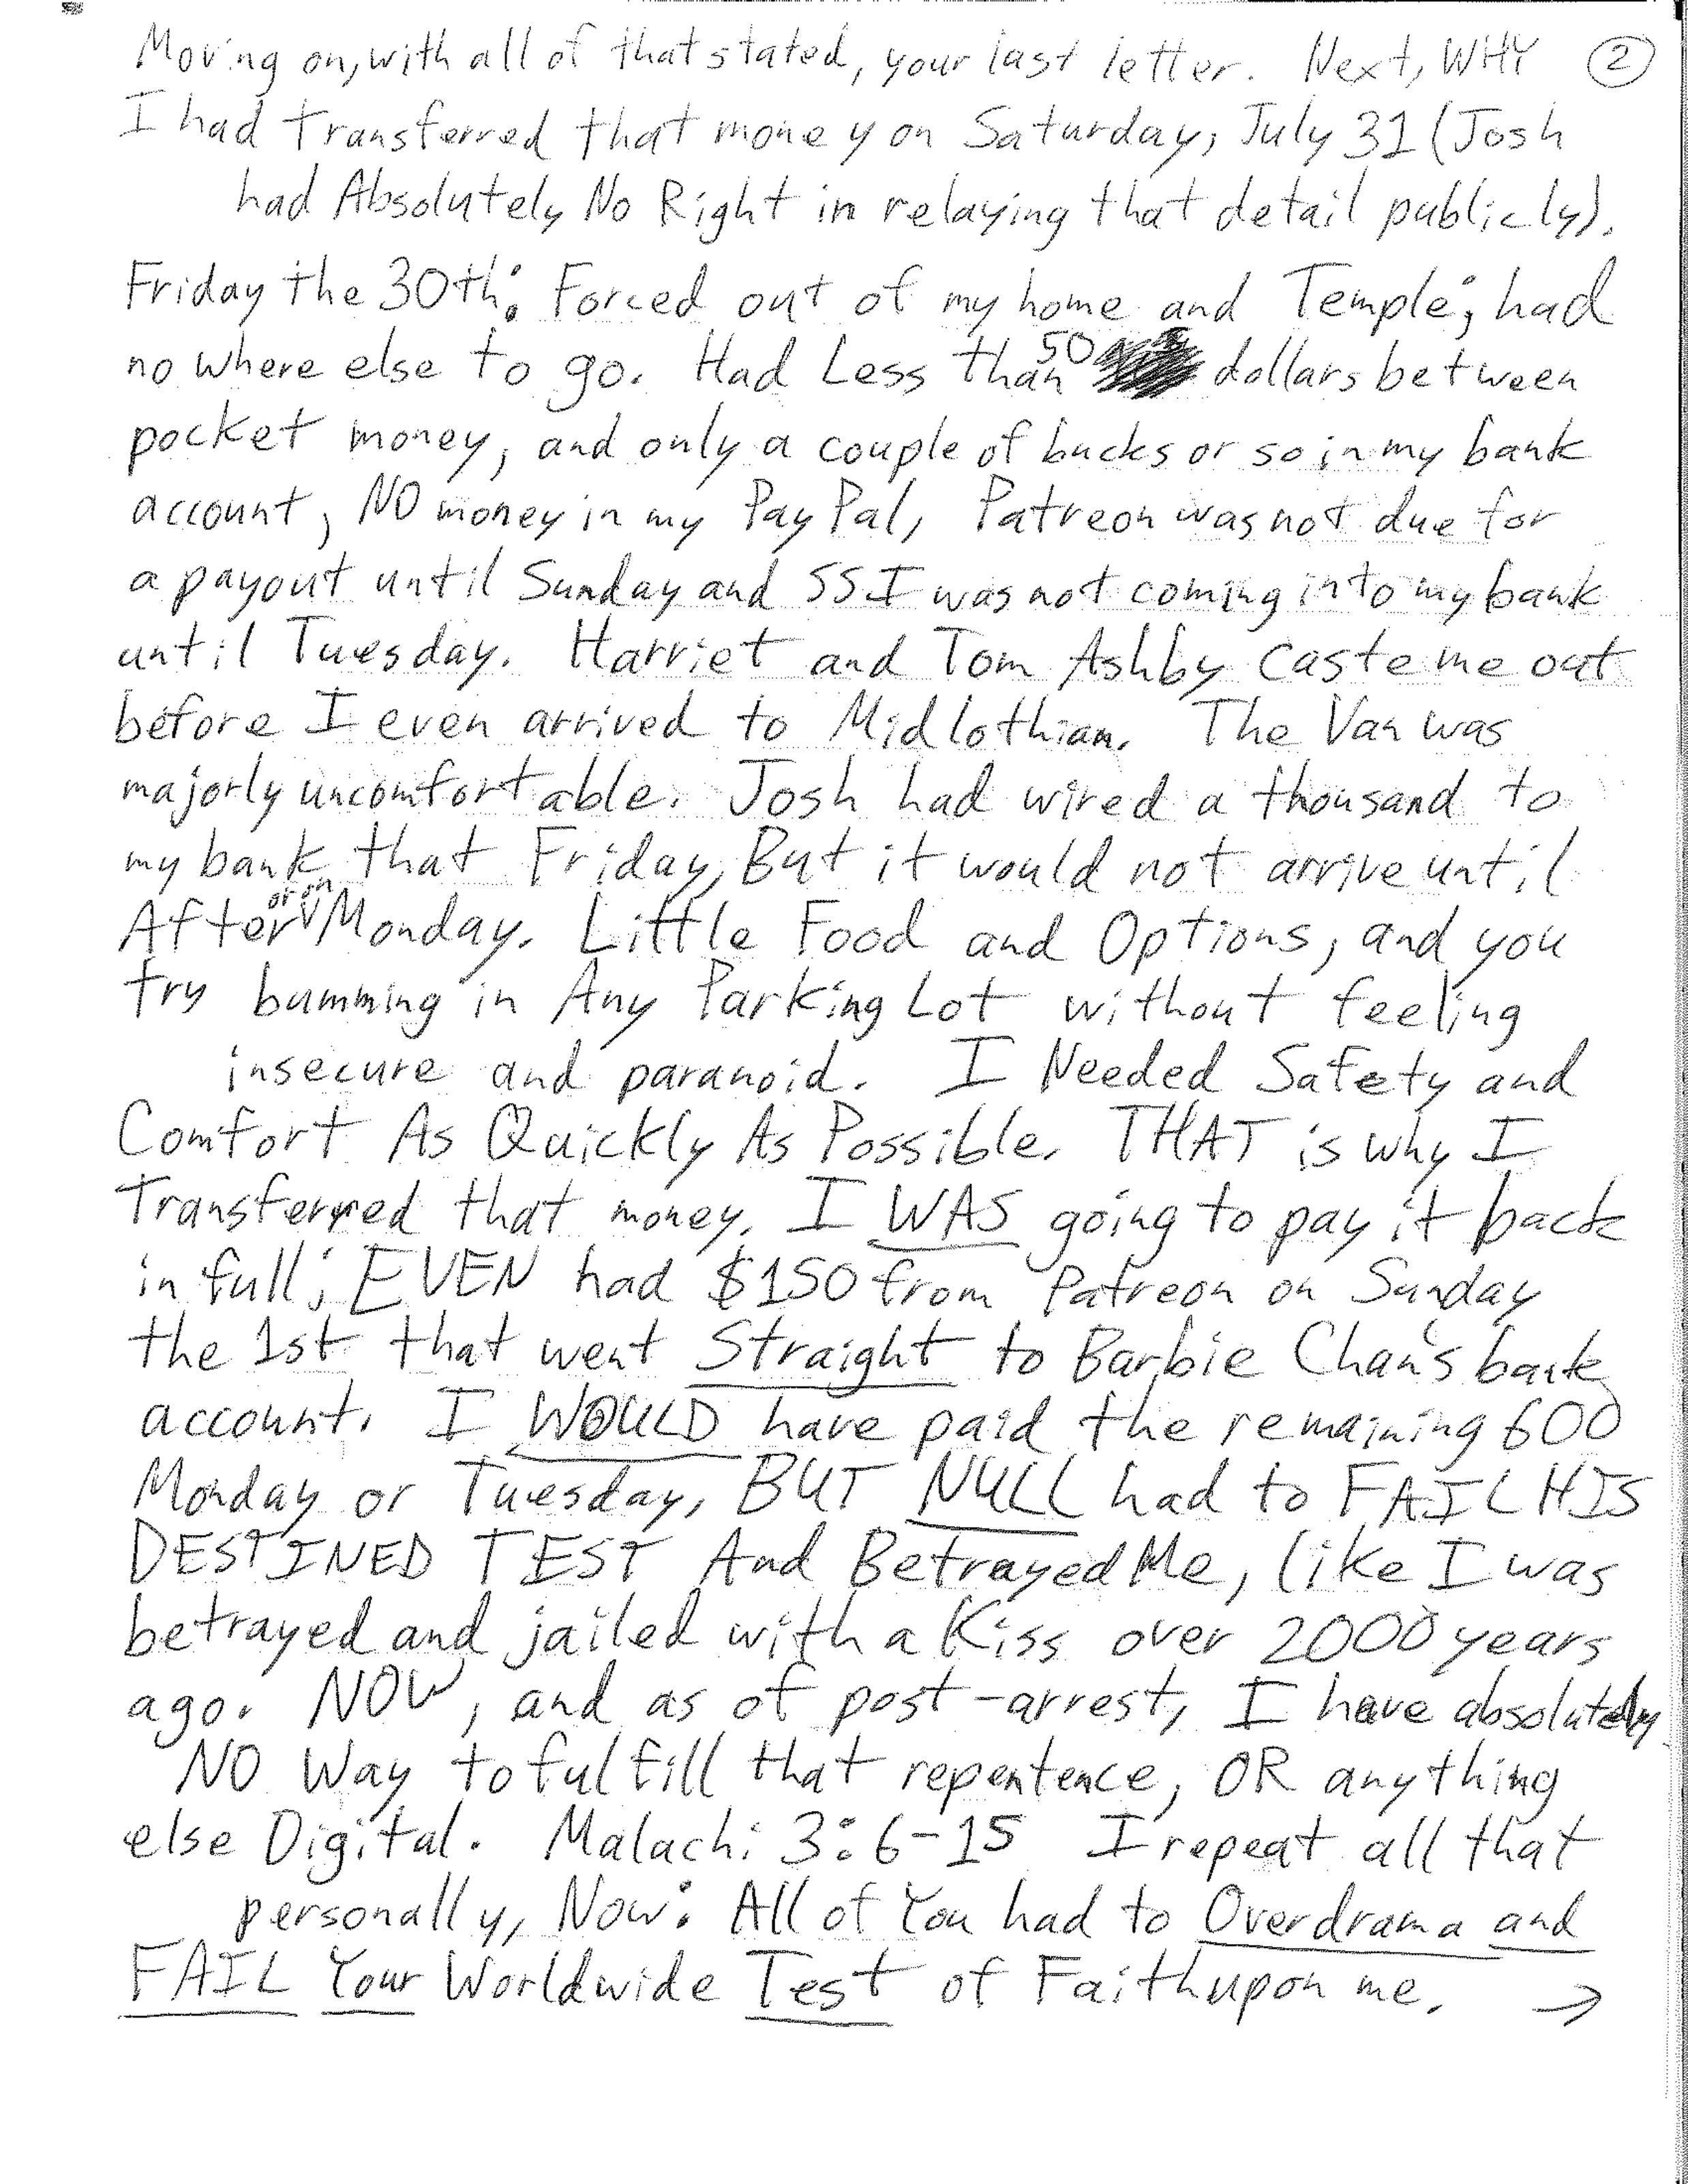 Moving on, with all of that stated, your last letter. Next, WHY ②
I had transferred that money on Saturday, July 31 (Josh
had Absolutely No Right in relaying that detail publicly).
Friday the 30th: Forced out of my home and Temple; had
no where else to go. Had Less than 50 dollars between
pocket money, and only a couple of bucks or so in my bank
account, NO money in my PayPal, Patreon was not due for
a payout until Sunday and SSI was not coming into my bank
until Tuesday. Harriet and Tom Ashby caste me out
before I even arrived to Midlothian. The Van was
majorly uncomfortable. Josh had wired a thousand to
my bank that Friday, But it would not arrive until
After or on Monday. Little Food and Options, and you
try bumming in Any Parking Lot without feeling
insecure and paranoid. I Needed Safety and
Comfort As Quickly As Possible. THAT is why I
Transferred that money. I WAS going to pay it back
in full; EVEN had $150 from Patreon on Sunday
the 1st that went Straight to Barbie Chan's bank
account. I WOULD have paid the remaining 600
Monday or Tuesday, BUT NULL had to FAIL HIS
DESTINED TEST And Betrayed Me, like I was
betrayed and jailed with a Kiss over 2000 years
ago. NOW, and as of post-arrest, I have absolutely
NO Way to fulfill that repentence, OR anything
else Digital. Malachi 3:6-15 I repeat all that
personally, Now: All of You had to Overdrama and
FAIL Your Worldwide Test of Faith upon me. →